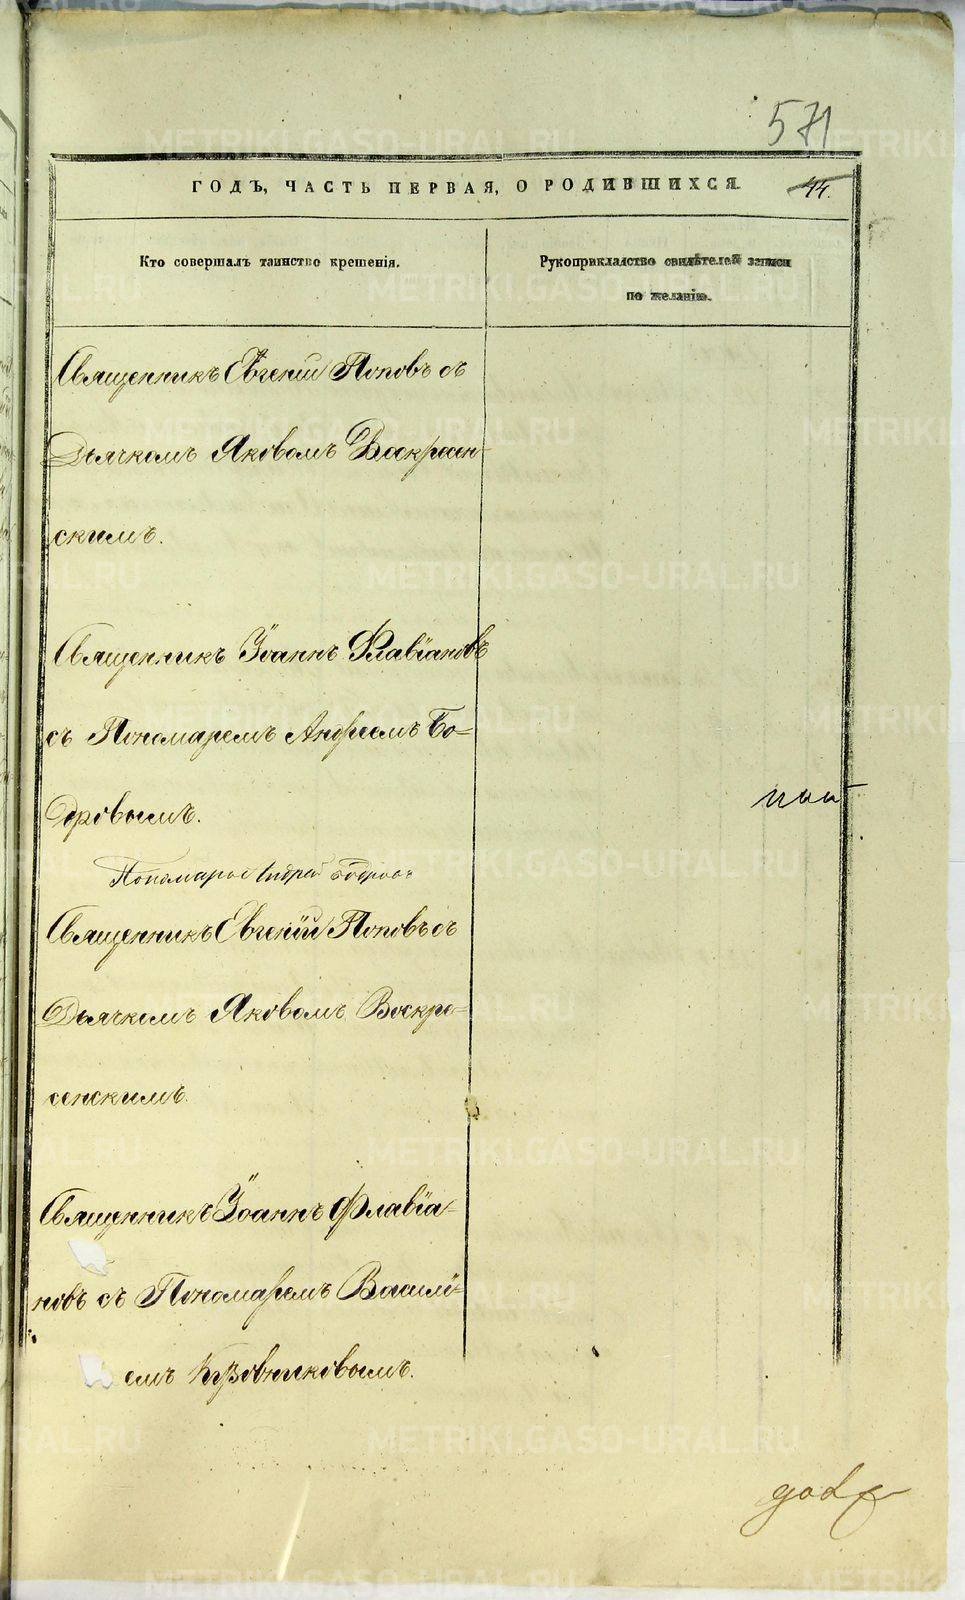 571
ГОДЪ, ЧАСТЬ ПЕРВАЯ, О РОДИВШИХСЯ.
44.
Кто совершалъ таинство крещенія.
Рукоприкладство свидѣтелей записи
по желанію.
Священникъ Евгеній Поповъ съ
Дьячкомъ Яковомъ Воскресен-
скимъ.
Священникъ Іоаннъ Флавіановъ
съ Пономаремъ Андреемъ Бо-
дровымъ.
Пономарь Андрей Бодровъ
Священникъ Евгеній Поповъ съ
Дьячкомъ Яковомъ Воскре-
сенскимъ.
Священникъ Іоаннъ Флавіа-
новъ съ Пономаремъ Василі-
емъ Кузовниковымъ.
METRIKI.GASO-URAL.RU